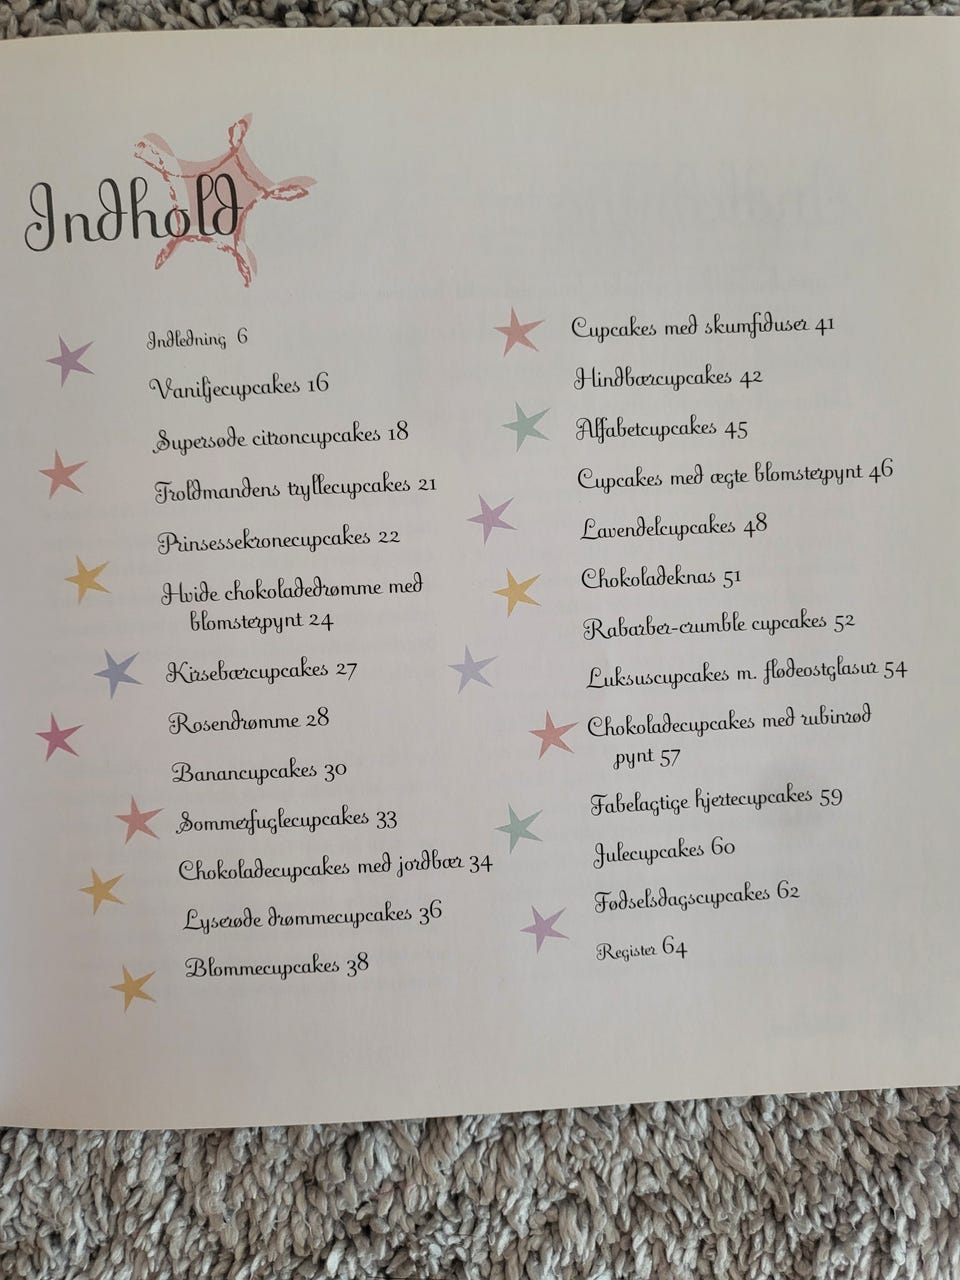 Indhold
Indledning 6
Vaniljecupcakes 16
Supersøde citroncupcakes 18
Troldmandens tryllecupcakes 21
Prinsessekronecupcakes 22
Hvide chokoladedrømme med
blomsterpynt 24
Kirsebærcupcakes 27
Rosendrømme 28
Banancupcakes 30
Sommerfuglecupcakes 33
Chokoladecupcakes med jordbær 34
Lyserøde drømmecupcakes 36
Blommecupcakes 38
Cupcakes med skumfiduser 41
Hindbærcupcakes 42
Alfabetcupcakes 45
Cupcakes med ægte blomsterpynt 46
Lavendelcupcakes 48
Chokoladeknas 51
Rabarber-crumble cupcakes 52
Luksuscupcakes m. flødeostglasur 54
Chokoladecupcakes med rubinrød
pynt 57
Fabelagtige hjertecupcakes 59
Julecupcakes 60
Fødselsdagscupcakes 62
Register 64